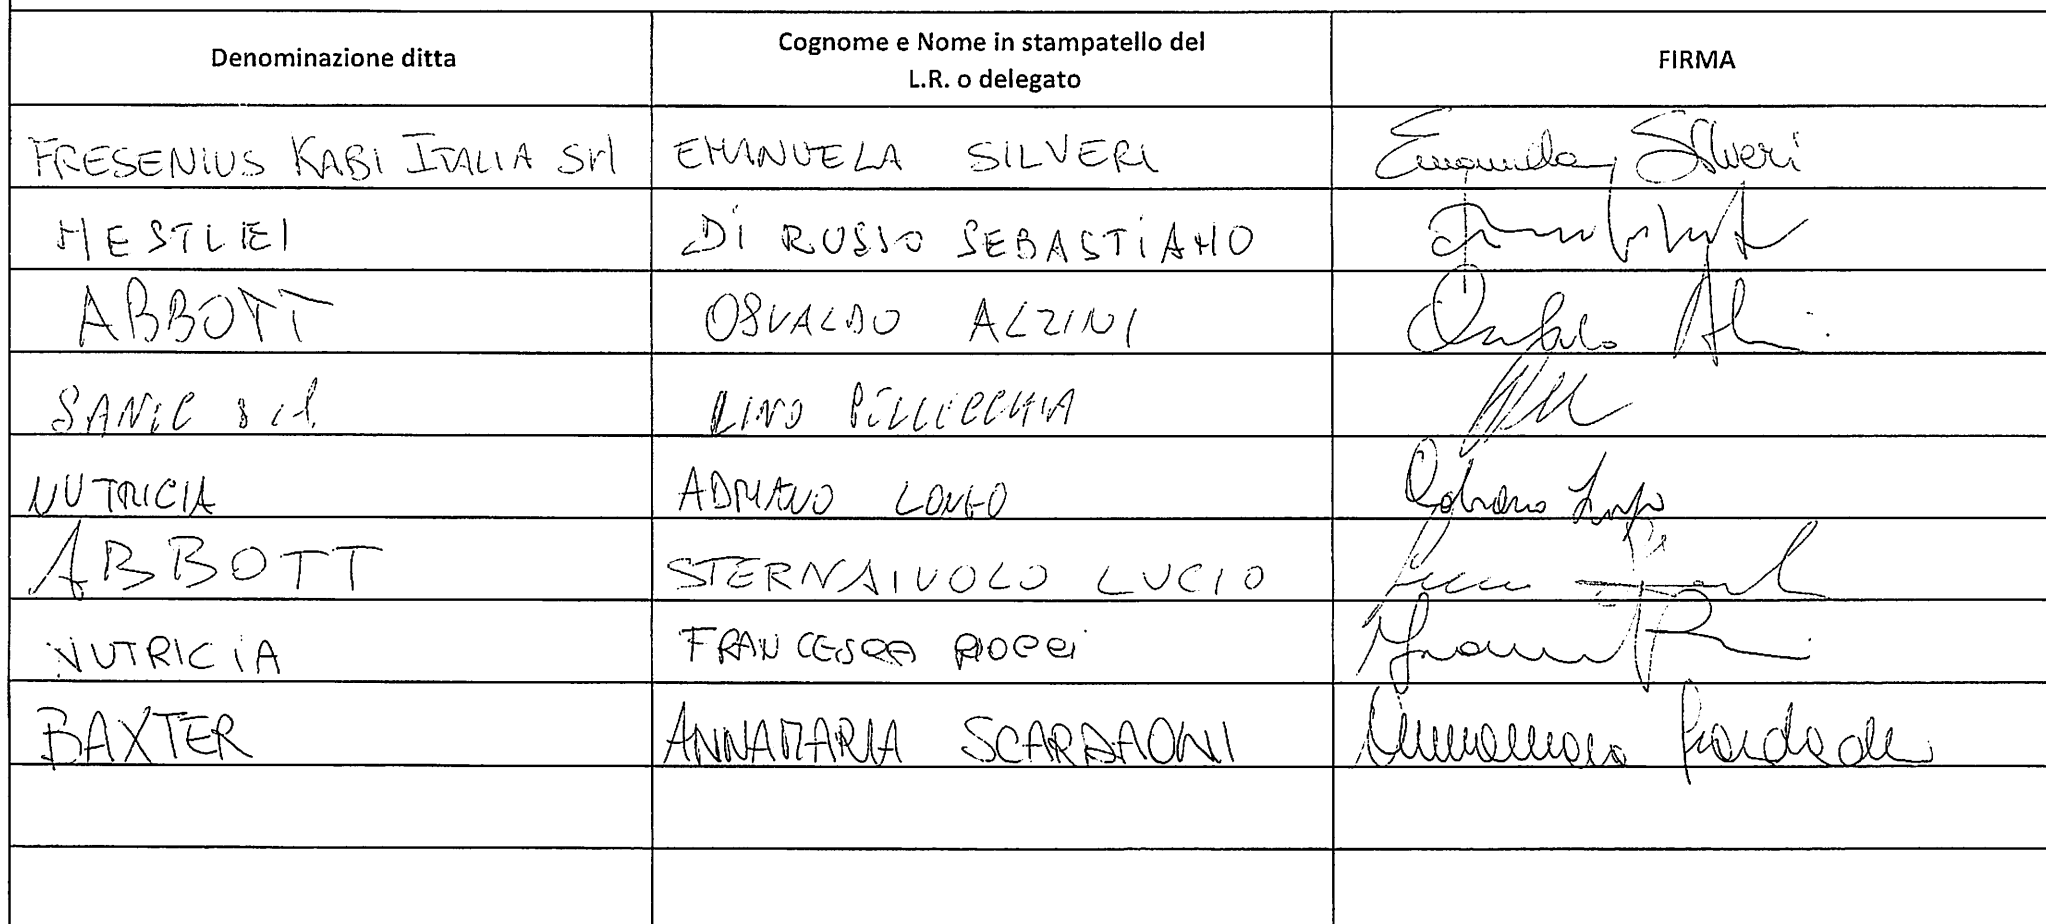 Denominazione ditta
Cognome e Nome in stampatello del
L.R. o delegato
FIRMA
FRESENIUS KABI ITALIA Srl EMANUELA SILVERI Emanuela Silveri
NESTLEI DI RUSSO SEBASTIANO
ABBOTT OSVALDO ALZINI Osvaldo
SANIC s.r.l. LINO PELLECCHIA
NUTRICIA ADRIANO LONGO Adriano Longo
ABBOTT STERNAIUOLO LUCIO
NUTRICIA FRANCESCA
BAXTER ANNAMARIA SCARDAONI Annamaria Scardaoni